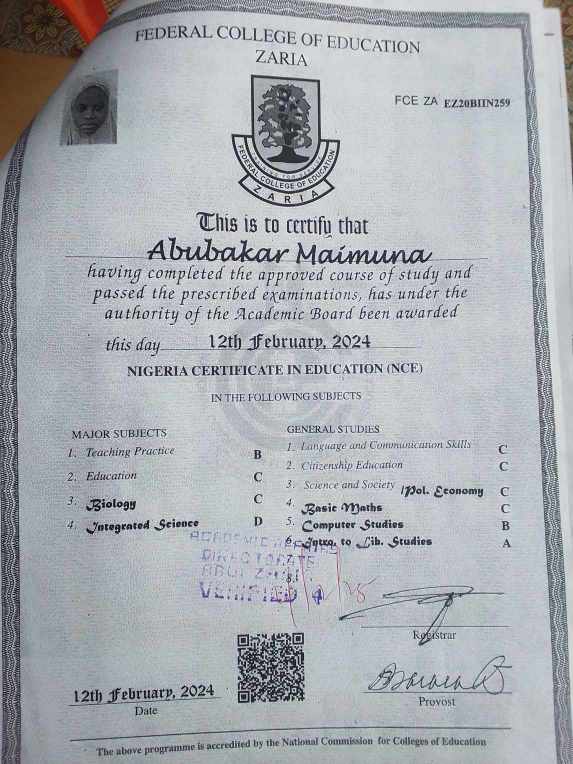 FEDERAL COLLEGE OF EDUCATION
ZARIA
FCE ZA EZ20BIIN259
FEDERAL COLLEGE OF EDUCATION
ZARIA
This is to certify that
Abubakar Maimuna
having completed the approved course of study and
passed the prescribed examinations, has under the
authority of the Academic Board been awarded
this day 12th February, 2024
NIGERIA CERTIFICATE IN EDUCATION (NCE)
IN THE FOLLOWING SUBJECTS
MAJOR SUBJECTS
1. Teaching Practice B
2. Education C
3. Biology C
4. Integrated Science D
GENERAL STUDIES
1. Language and Communication Skills C
2. Citizenship Education C
3. Science and Society /Pol. Economy C
4. Basic Maths C
5. Computer Studies B
6. Intro. to Lib. Studies A
8.
ACADEMIC AFFAIRS
DIRECTORATE
VERIFIED
Registrar
12th February, 2024
Date
Provost
The above programme is accredited by the National Commission for Colleges of Education